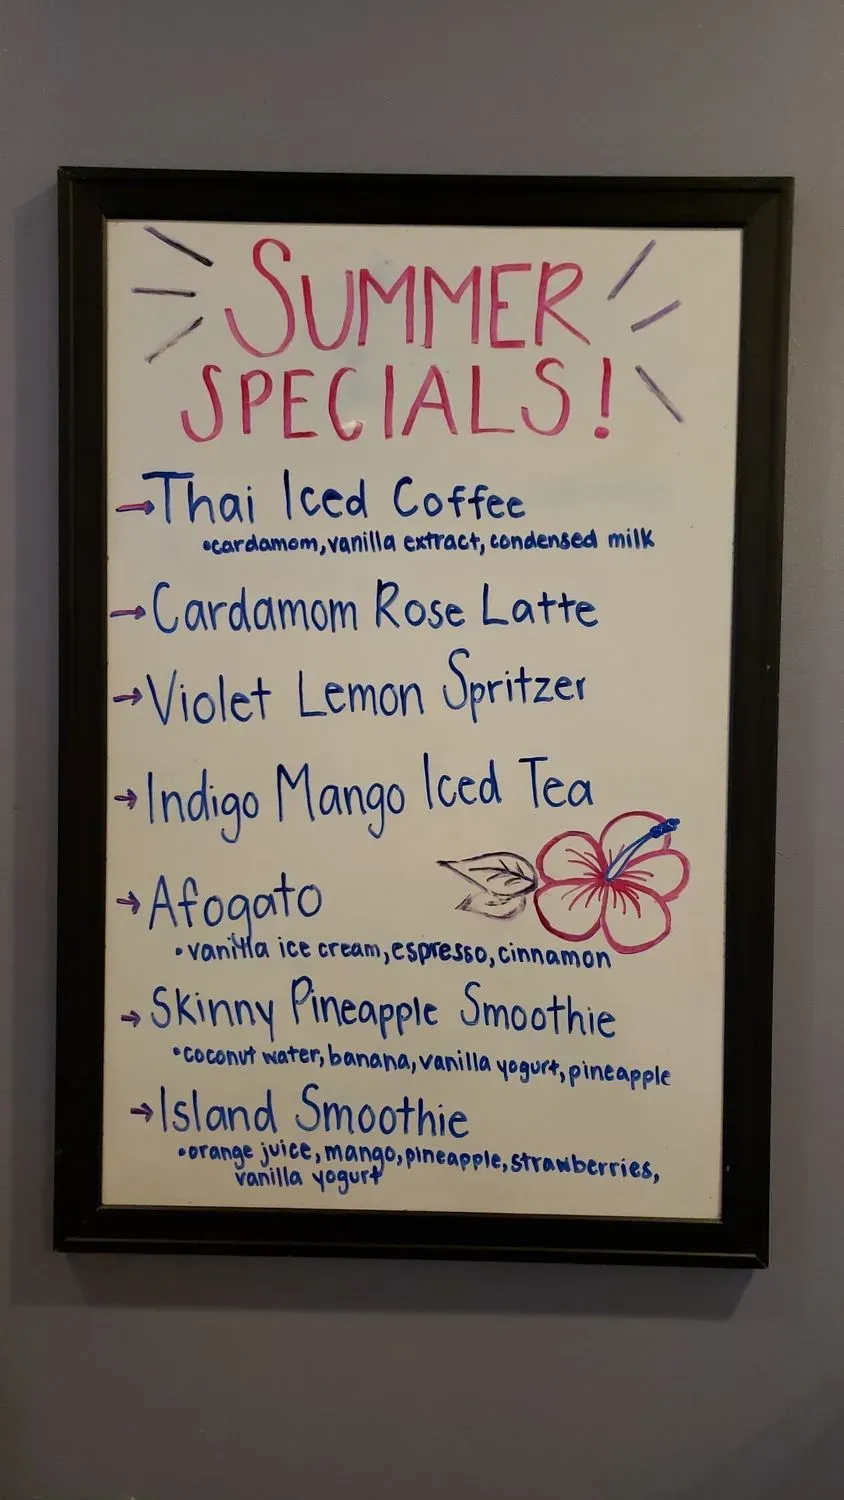 SUMMER
SPECIALS!
→Thai Iced Coffee
•cardamom, vanilla extract, condensed milk
→Cardamom Rose Latte
→Violet Lemon Spritzer
→Indigo Mango Iced Tea
→Afogato
•vanilla ice cream, espresso, cinnamon
→Skinny Pineapple Smoothie
•coconut water, banana, vanilla yogurt, pineapple
→Island Smoothie
•orange juice, mango, pineapple, strawberries,
vanilla yogurt